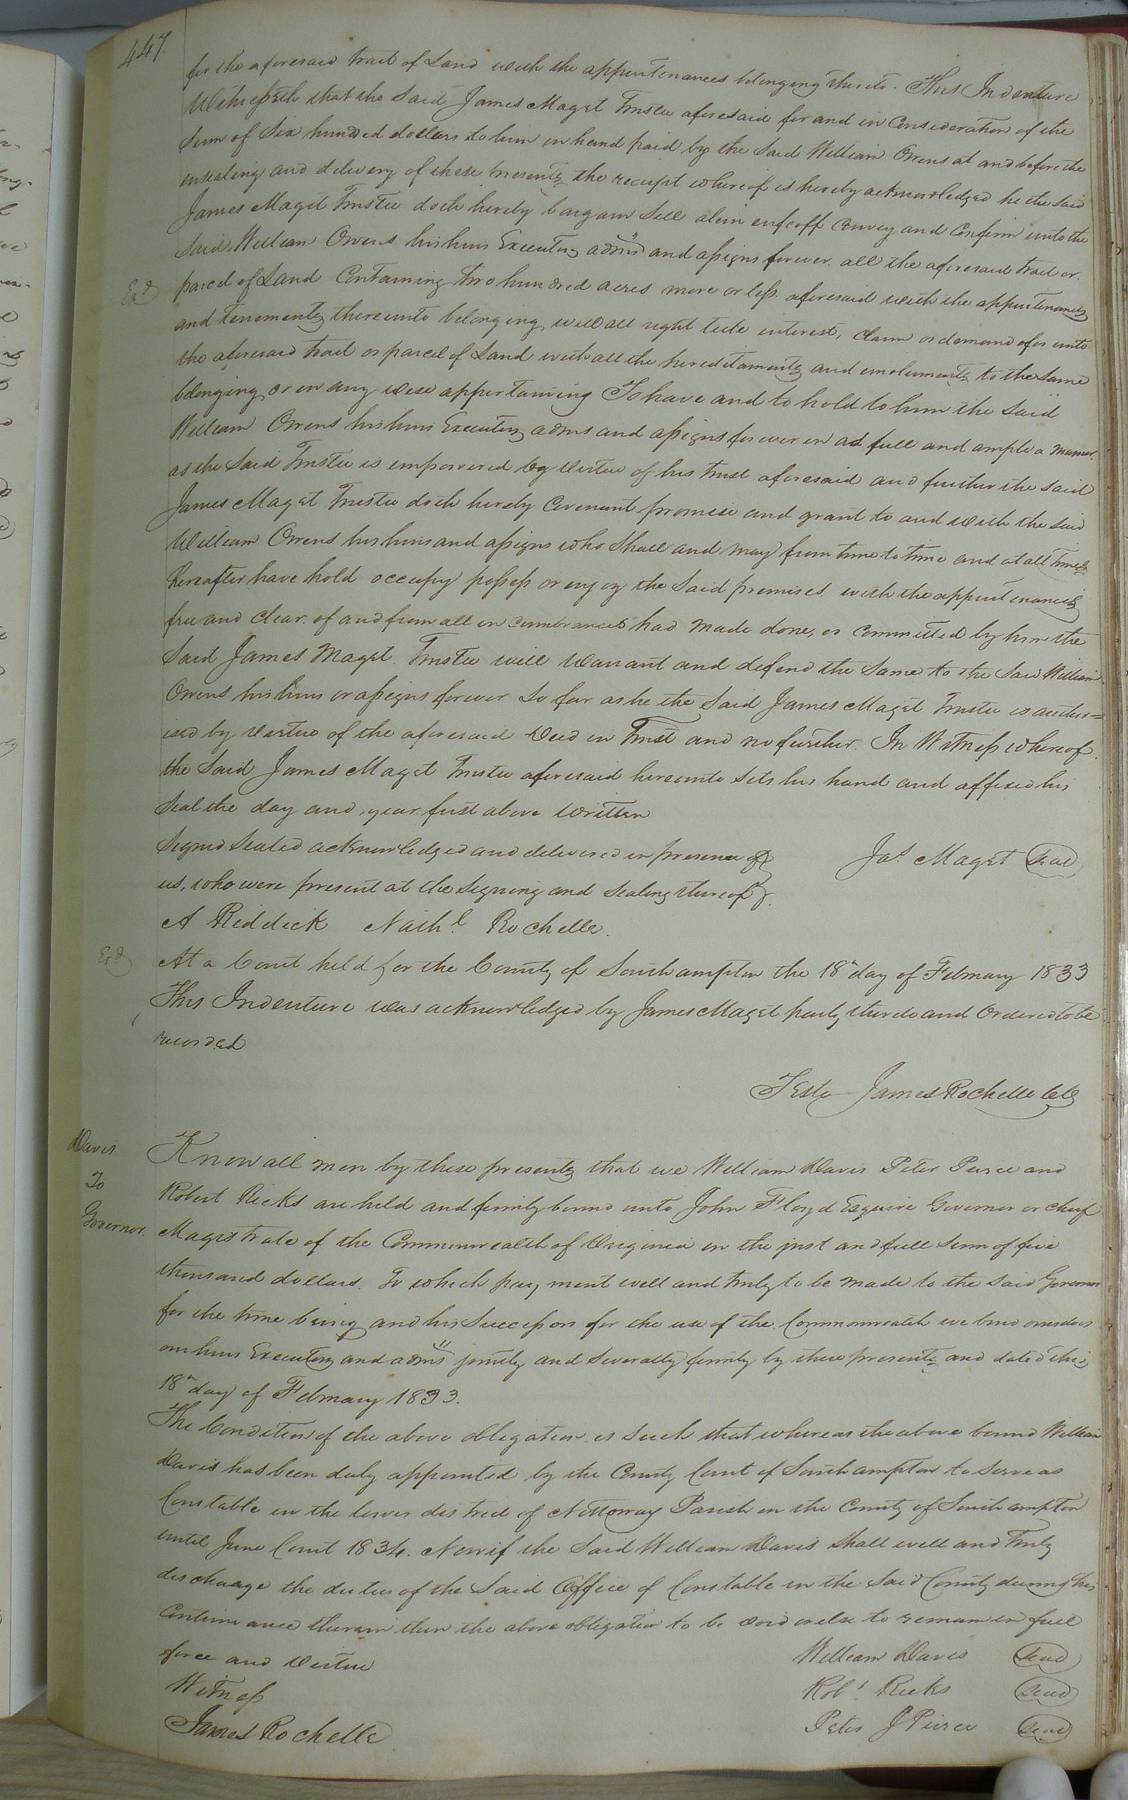 447
for the aforesaid tract of Land with the appurtenances blonging thereto. This Indenture
Witnesseth that the Said James Maget Trustee aforesaid for and in Consideration of the
Sum of Six hundred dollars to him in hand paid by the Said William Owens at and before the
ensealing and delivery of these presents, the receipt whereof is hereby acknowledged he the said
James Maget Trustee doth hereby bargain Sell alien enfeoff Convey and Confirm unto the
Said William Owens his heirs Executors adms and assigns forever all the aforesaid tract or
parcel of Land Containing Two hundred acres more or less aforesaid with the appurtenances
and tenements thereunto belonging with all right title interest, Claim or demand of in unto
the aforesaid tract or parcel of Land with all the hereditaments and emoluments to the Same
belonging or in any wise appertaining To have and to hold to him the Said
William Owens his heirs Executors adms and assigns forever in as full and ample a manner
as the Said Trustee is empowered by Virtue of his trust aforesaid and further the said
James Maget Trustee doth hereby Covenant promise and grant to and with the Said
William Owens his heirs and assigns who Shall and may from time to time and at all times
hereafter have hold occupy possess or enjoy the Said premises with the appurtenances
free and Clear of and from all incumbrances had made done, or Committed by him the
Said James Maget Trustee will Warrant and defend the Same to the Said William
Owens his heirs or assigns forever So far as he the Said James Maget Trustee is author=
ised by Virtue of the aforesaid Deed in Trust and no further. In Witness whereof
the Said James Maget Trustee aforesaid hereunto Sets his hand and affixed his
Seal the day and year first above Written
Signed Sealed acknowledged and delivered in presence of
us, who were present at the Signing and Sealing thereof
Jas. Maget Seal
A Riddick Nathl Rochelle.
Exd
At a Court held for the County of Southampton the 18th day of February 1833
This Indenture was acknowledged by James Maget party thereto and Ordered to be
recorded
Teste James Rochelle Clk
Davis
To
Governor.
Know all men by these presents that we William Davis Peter Pierce and
Robert Ricks are held and firmly bound unto John Floyd Esquire Governor or Chief
Magistrate of the Commonwealth of Virginia in the just and full Sum of five
thousand dollars. To which payment well and truly to be made to the Said Governor
for the time being and his Successors for the use of the Commonwealth we bind ourselves
our heirs Executors and adms jointly and Severally firmly by these presents and dated this
18th day of February 1833.
The Condition of the above obligation is Such that whereas the above bound William
Davis has been duly appointed by the County Court of Southampton to Serve as
Constable in the lower district of Nottoway Parish in the County of Southampton
until June Court 1834. Now if the Said William Davis Shall well and Truly
discharge the duties of the Said Office of Constable in the Said County during his
Continuance therein then the above obligation to be void or else to remain in full
force and Virtue
William Davis Seal
Witness
Robt. Ricks Seal
James Rochelle
Peter J Pierce Seal